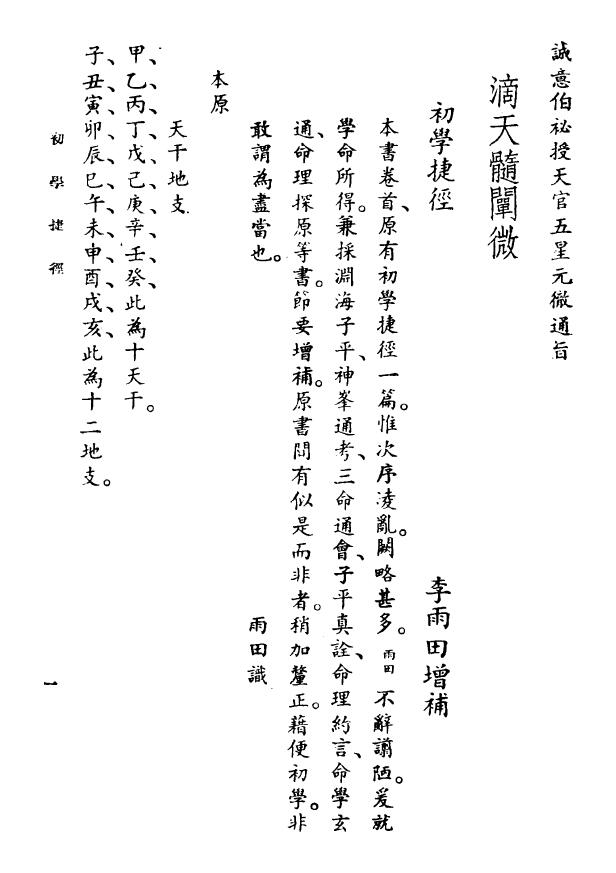 誠意伯祕授天官五星元徵通旨
滴天髓闡微
初學捷徑
李雨田增補
本書卷首、原有初學捷徑一篇。惟次序淩亂。闕略甚多。雨田不辭謭陋。爰就
學命所得。兼採淵海子平、神峯通考、三命通會、子平真詮、命理約言、命學玄
通、命理探原等書。節要增補。原書間有似是而非者。稍加釐正。藉便初學。非
敢謂為盡當也。
雨田識
本原
天干地支
甲、乙、丙、丁、戊、己、庚、辛、壬、癸、此為十天干。
子、丑、寅、卯、辰、巳、午、未、申、酉、戌、亥、此為十二地支。
初學捷徑
一